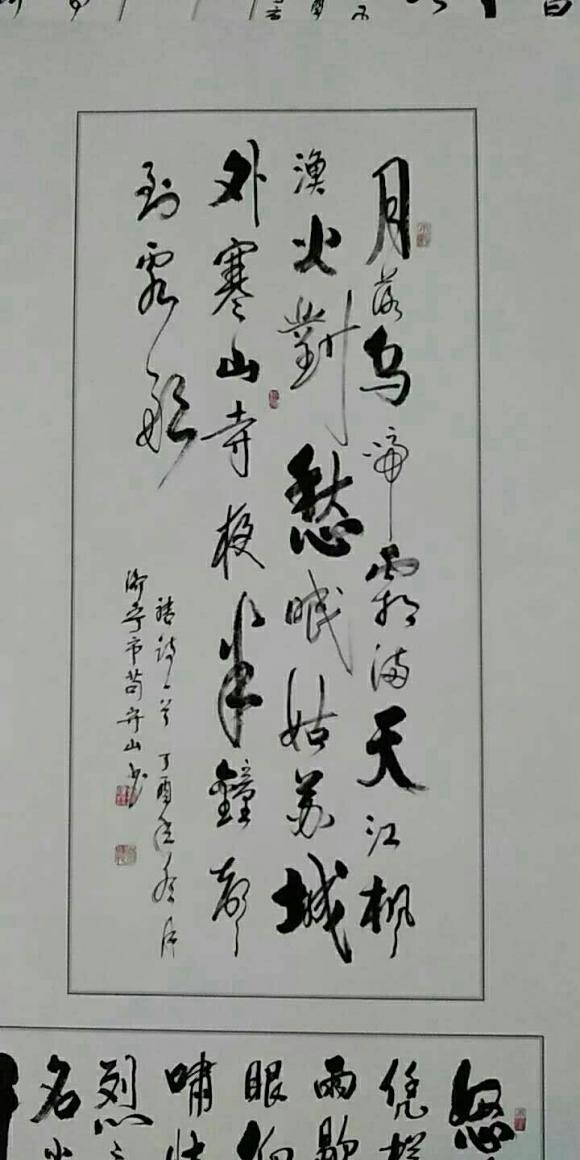 月落乌啼霜满天江枫
渔火對愁眠姑苏城
外寒山寺夜半鐘声
到客船
诗一首 丁酉年
济宁市苟守山书
怒
凭栏
雨歇
眼仰
嘯
烈
名